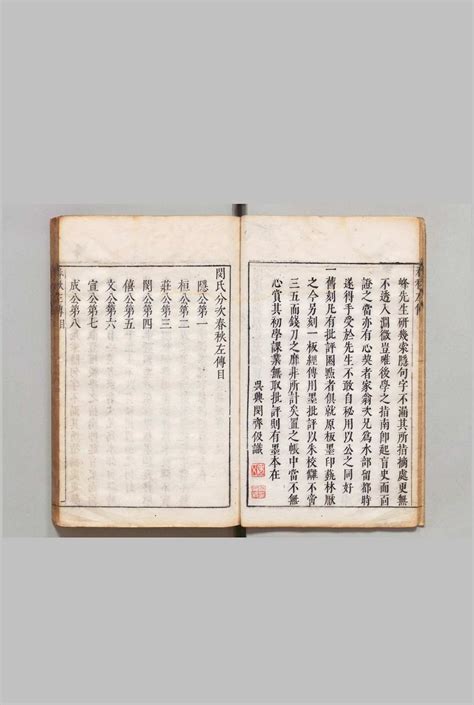 蜂先生研幾索隱句字不漏其所指摘處更無
不透入淵微豈唯後學之指南即起盲史而面
證之當亦有心莫者家翁次兄爲水部留都時
遂得手受於先生不敢自秘用以公之同好
一舊刻凡有批評圈點者俱就原板墨印藝林厭
之今另刻一板經傳用墨批評以朱校讎不啻
三五而錢刀之靡非所計矣置之帳中當不無
心賞其初學課業無取批評則有墨本在
吳興閔齊伋識
閔氏分次春秋左傳目
隱公第一
桓公第二
莊公第三
閔公第四
僖公第五
文公第六
宣公第七
成公第八
春秋左傳目